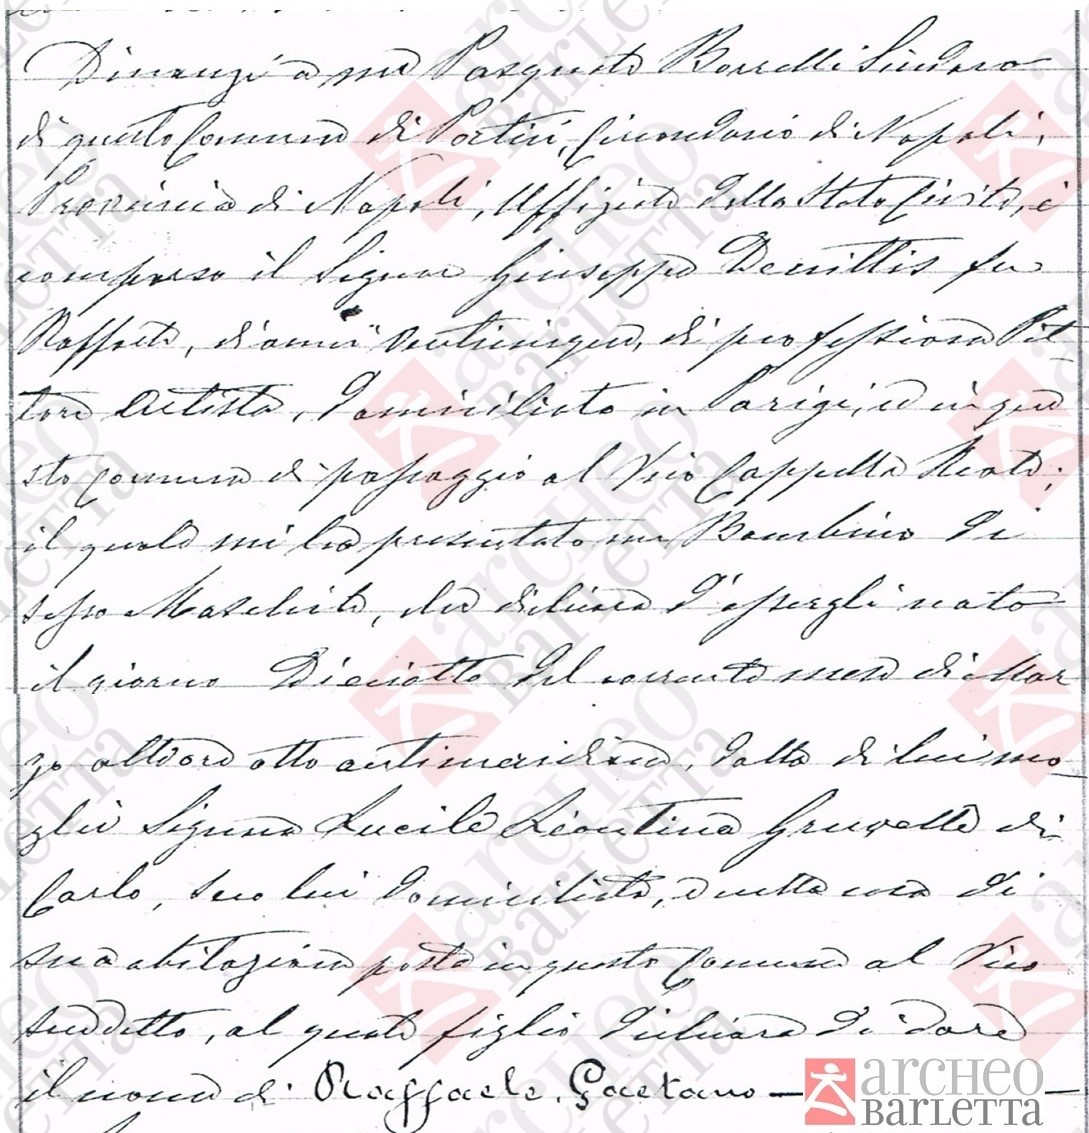 Dinanzi a me Pasquale Borrelli Sindaco
di questo Comune di Portici, Circondario di Napoli,
Provincia di Napoli, Uffiziale dello Stato Civile, è
comparso il Signor Giuseppe Denittis fu
Raffaele, di anni venticinque, di professione Pit-
tore Artista, domiciliato in Parigi, ed in que
sto Comune di passaggio al Vico Cappella Reale;
il quale mi ha presentato un Bambino di
sesso Maschile, che dichiara d'essergli nato
il giorno Diciotto del corrente mese di Mar
zo alle ore otto antimeridiane, dalla di lui mo-
glie Signora Lucile Leontina Gruvelle di
Carlo, seco lui domiciliata, e nella casa di
sua abitazione posta in questo Comune al Vico
suddetto, al quale figlio dichiara di dare
il nome di Raffaele, Gaetano —
archeo
BARLETTA